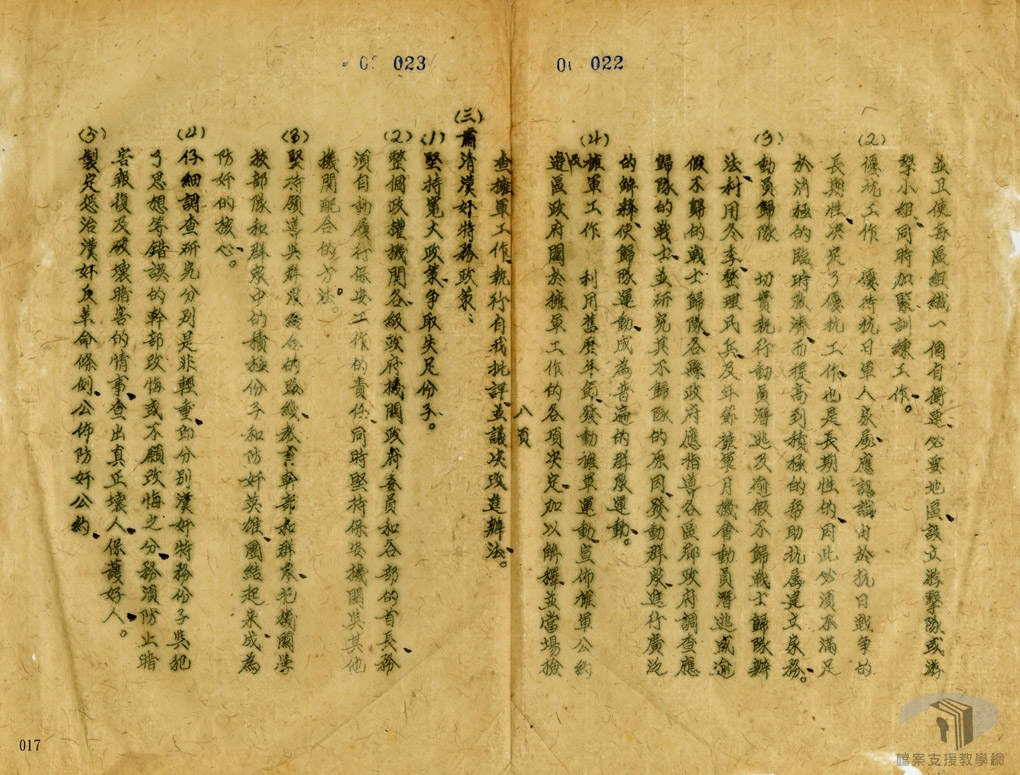 022
並且使每區組織一個自衛連必要地區設立游擊隊或游
擊小組、同時加緊訓練工作。
(2) 優抗工作 優待抗日軍人家屬應認識由於抗日戰爭的
長期性、決定了優抗工作也是長期性的因此必須不滿足
於消極的臨時救濟、而提高到積極的幫助抗屬建立家務。
(3) 動員歸隊 切實執行動員潛逃及逾假不歸戰士歸隊辦
法、利用冬季整理民兵及年節擁軍月機會動員潛逃或逾
假不歸的戰士歸隊、各縣政府應指導各區鄉政府調查應
歸隊的戰士並研究其不歸隊的原因、發動群眾進行廣泛
的解釋、使歸隊運動、成為普遍的群眾運動。
(4) 擁軍工作 利用舊曆年節、發動擁軍運動、宣佈擁軍公約
邊區政府關於擁軍工作的各項決定、加以解釋並當場檢
八頁
查擁軍工作、執行自我批評、並議決改進辦法。
023
(三) 肅清漢奸特務政策、
(1) 堅持寬大政策、爭取失足份子。
(2) 整個政權機關各級政府機關政府委員和各部的首長、務
須自動履行保安工作的責任、同時堅持保安機關與其他
機關配合的方法。
(3) 堅持領導與群眾結合的路線、教育幹部和群眾、把機關學
校部隊和群眾中的積極份子和防奸英雄、團結起來、成為
防奸的核心。
(4) 仔細調查研究分別是非輕重、即分別漢奸特務份子與犯
了思想等錯誤的幹部改悔或不願改悔之分、務須防止暗
害報復及破壞暗害的情事、查出真正壞人、保護好人。
(5) 製定懲治漢奸反革命條例、公佈防奸公約、
017
檔案支援教學網